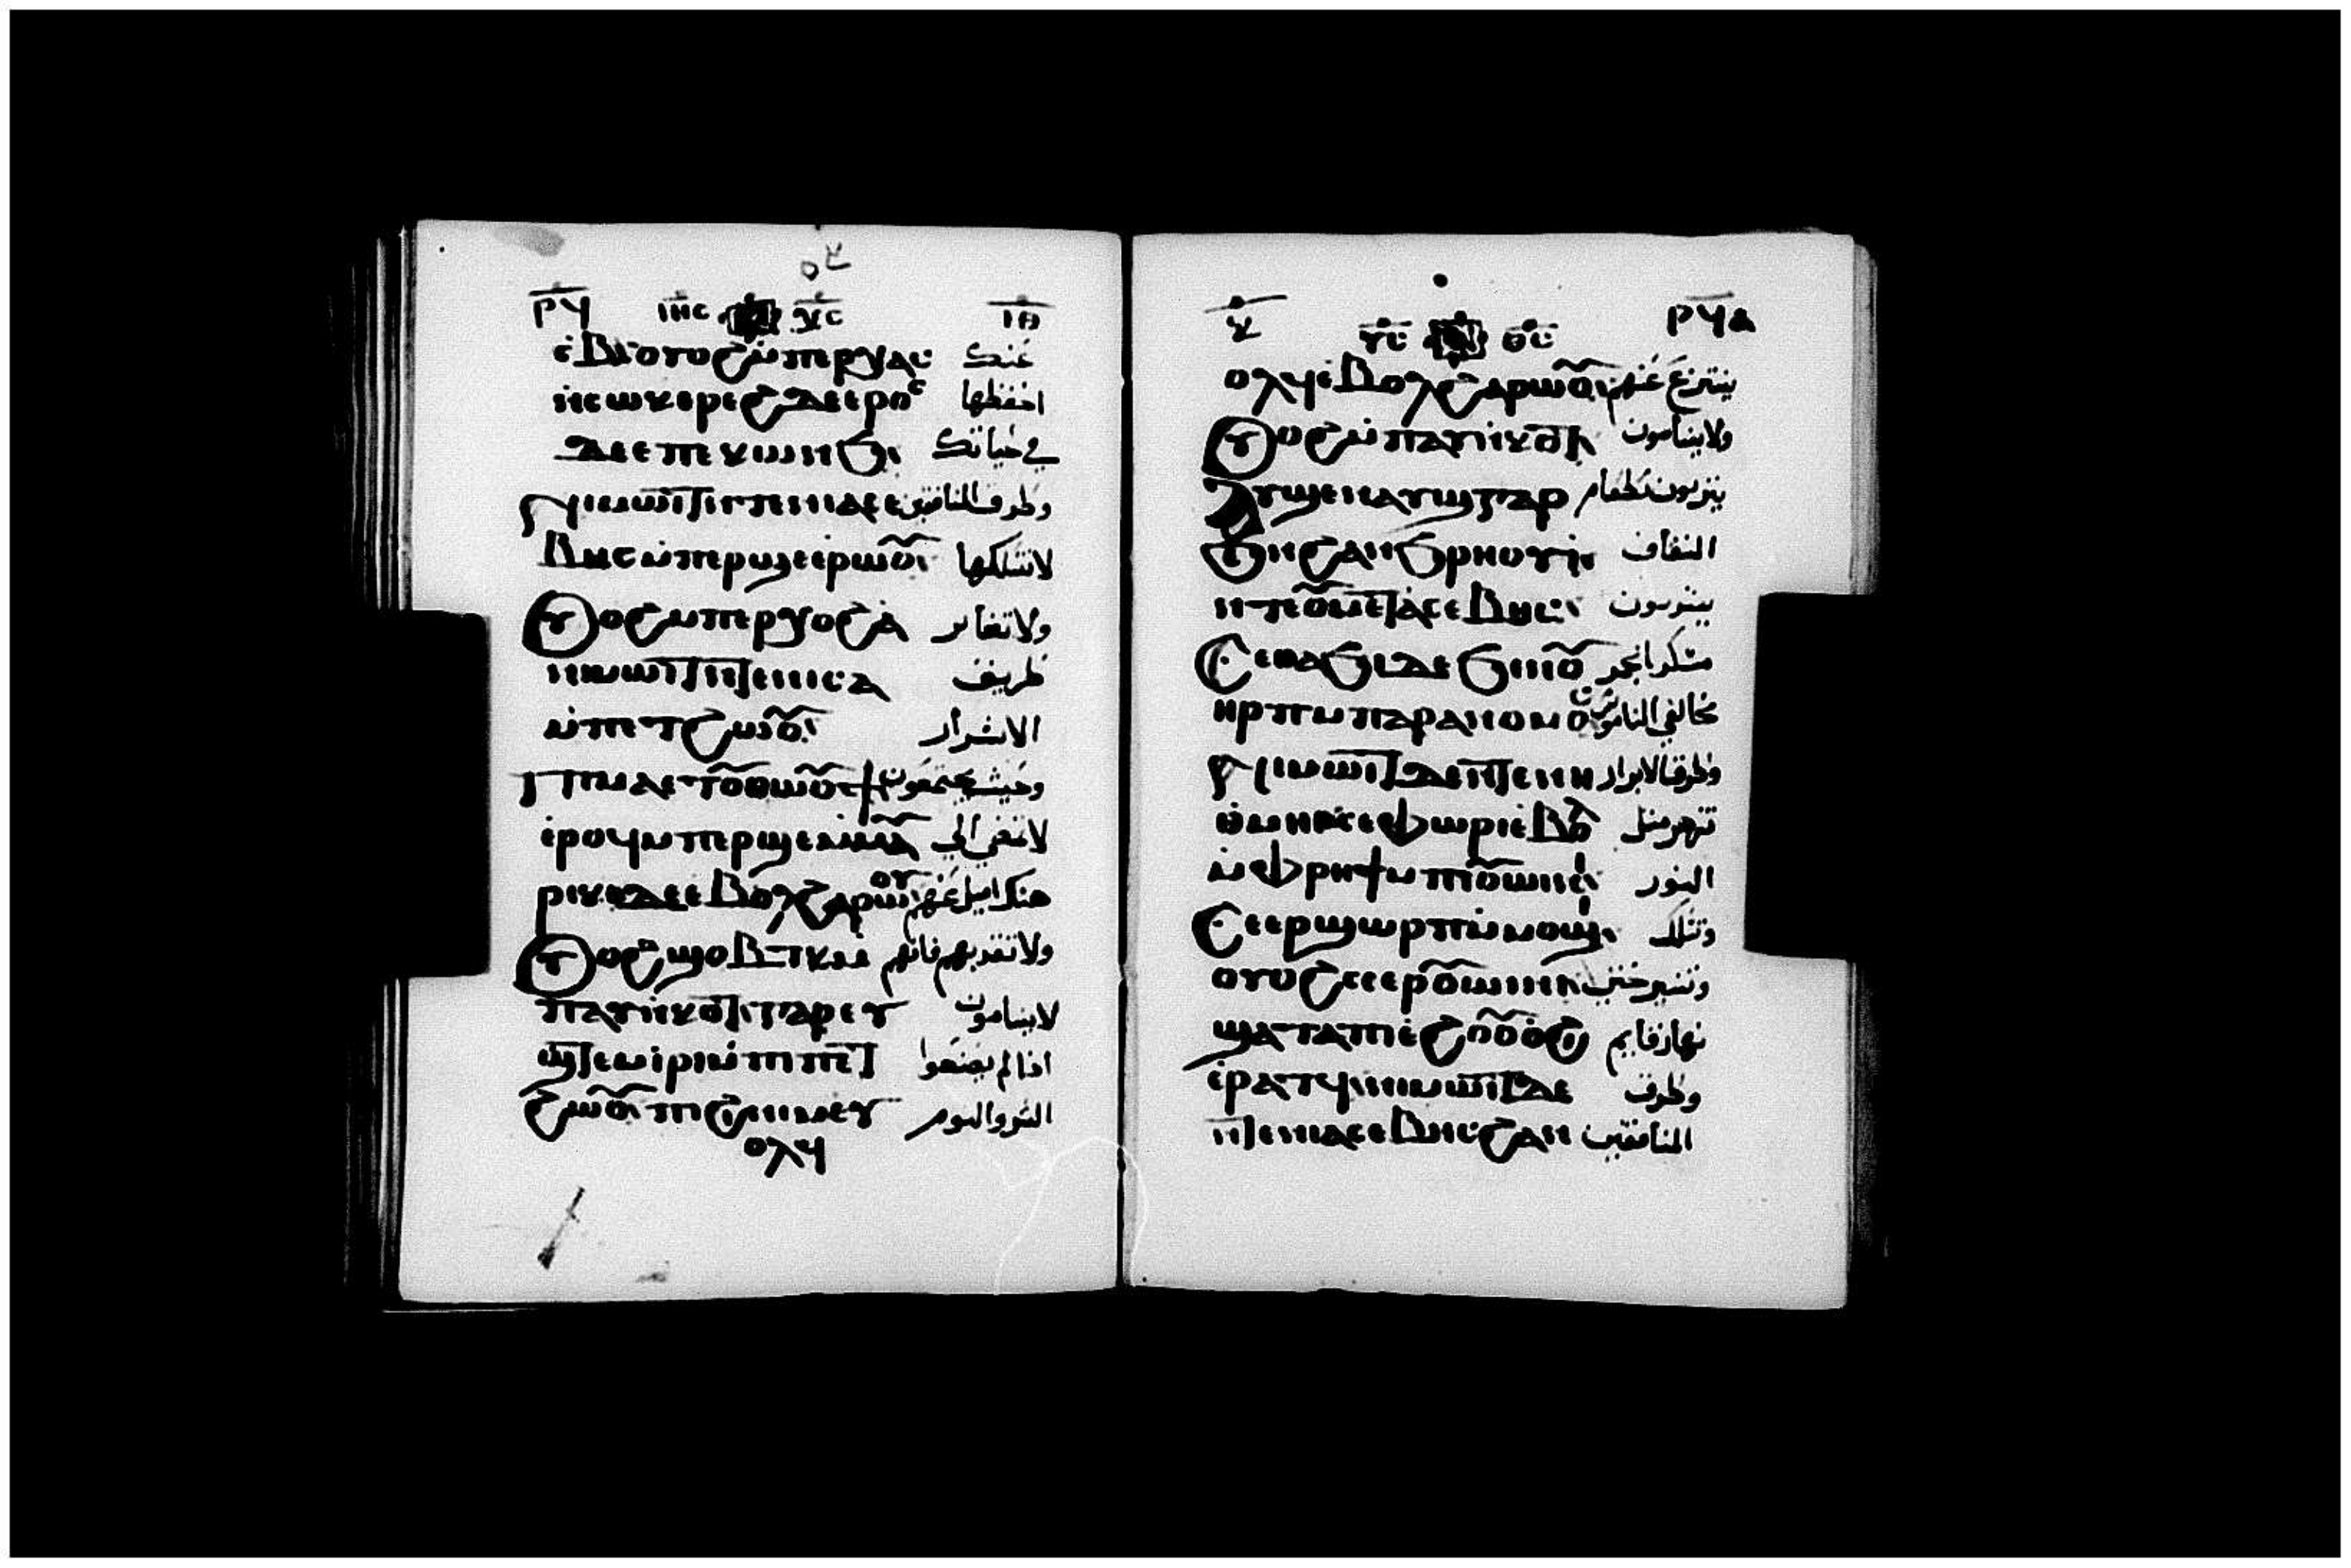 ⲣϥ ⲓⲏⲥ ⲭⲥ ⲓⲑ
ⲉ̀ⲃⲗ ⲟⲩⲟϩ ⲙ̀ⲡⲉⲣⲭⲁⲥ عنك
ⲛ̀ⲥⲱⲕ ⲉⲣⲉϩ ⲇⲉ ⲉⲣⲟⲥ احفظها
ⲇⲉ ⲉⲡⲉⲕⲱⲛϧ في حياتك
ⲛⲓⲙⲱⲓⲧ ⲛⲧⲉⲛⲓⲁⲥⲉ وطرق المنافقين
ⲃⲏⲥ ⲙ̀ⲡⲉⲣϣⲉ ⲉ̀ⲣⲱⲟⲩ لا تسلكها
ⲟⲩⲟϩ ⲙⲡⲉⲣⲭⲟϩ ⲉ̀ ولا تغاير
ⲛⲓⲙⲱⲓⲧ ⲛⲧⲉⲛⲓⲥⲁ طريق
ⲙ̀ⲡⲉⲧϩⲱⲟⲩ الاشرار
ⲡⲓⲙⲁ ⲉⲧⲟⲩⲑⲱⲟⲩϯ وحيث يجتمعون
ⲉ̀ⲣⲟϥ ⲙⲡⲉⲣϣⲉ ⲉ̀ⲙⲁⲩ لا تمضي الي
ⲣⲓⲕⲓ ⲇⲉ ⲉⲃⲟⲗ ϩⲁⲣⲱⲟⲩ هناك اميل عنهم
ⲟⲩⲟϩ ϣⲟⲃⲧⲕ ولا تقتد بهم فانهم
ⲡⲁⲩⲛ̀ⲕⲟⲧ ⲅⲁⲣ ⲉⲩ لا ينامون
ϣⲧⲉⲙⲓⲣⲓ ⲙ̀ⲡⲓⲡⲉⲧ اذا لم يصنعوا
ϩⲱⲟⲩ ⲡⲓϩⲓⲛⲓⲙ ⲉⲩ الشر والنوم
ⲟⲗϥ
ⲕ ⲩⲥ ⲑⲥ ⲣϥⲁ
ⲟⲗϥ ⲉ̀ⲃⲟⲗ ϩⲁⲣⲱⲟⲩ ينتزع عنهم
ⲟⲩⲟϩ ⲙ̀ⲡⲁⲩⲛ̀ⲕⲟⲧ ولا ينامون
ⲁⲩϣⲉⲛⲁⲩϣ ⲅⲁⲣ يتربون بطعام
ϧⲉⲛ ϩⲁⲛϧⲣⲏⲟⲩⲓ̀ النفاق
ⲛⲧⲉⲟⲩⲙⲉⲧⲁ̀ⲥⲉⲃⲏⲥ يشربون
ⲥⲉⲛⲁⲑⲓϧⲓ ⲇⲉ ϧⲉⲛ ⲟⲩ مسكرا بخمر
ⲏⲣⲡ ⲙⲡⲁⲣⲁⲛⲟⲙⲟⲥ مخالفي الناموس
ⲛⲓⲙⲱⲓⲧ ⲇⲉ ⲛⲧⲉⲛⲓ وطرق الابرار
ⲑ̀ⲙⲏⲓ ⲥⲉⲫⲱⲣⲓ ⲉ̀ⲃⲟⲗ تزهر مثل
ⲙ̀ⲫⲣⲏϯ ⲙⲡⲓⲟⲩⲱⲓⲛⲓ النور
ⲥⲉⲉⲣϣⲱⲣⲡ ⲙ̀ⲙⲟϣⲓ وتسلك
ⲟⲩⲟϩ ⲥⲉⲉⲣⲟⲩⲱⲓⲛⲓ وتنير حتي
ϣⲁⲧⲁⲡⲓⲉ̀ϩⲟⲟⲩ ⲟ̀ϩⲓ نهار قايم
ⲉ̀ⲣⲁⲧϥ ⲛⲓⲙⲱⲓⲧ ⲇⲉ وطرق
ⲛⲧⲉⲛⲓⲁⲥⲉⲃⲏⲥ ϩⲁⲛ المنافقين